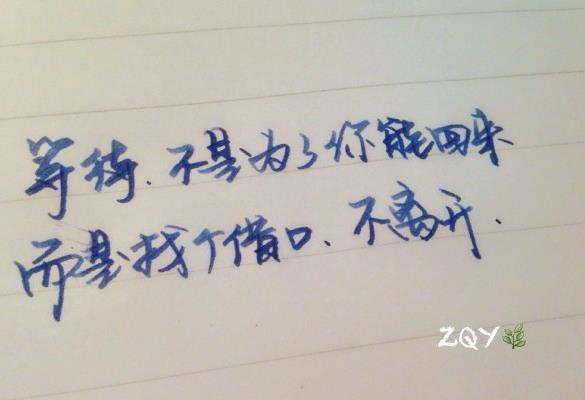 等待.不是为了你能回来
而是找个借口、不离开.
ZQY🌿